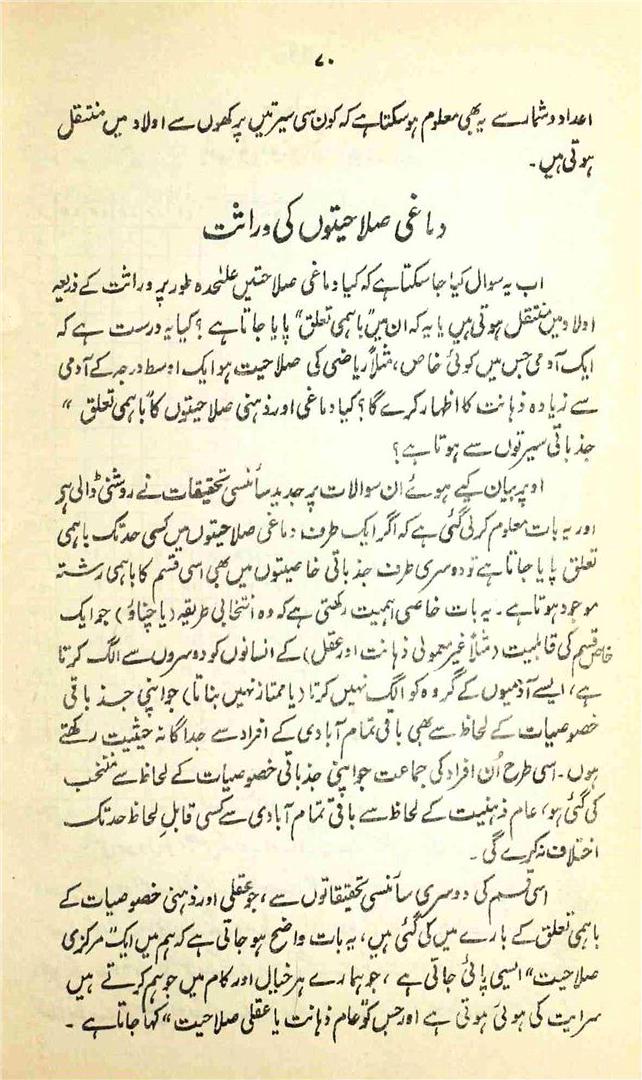 ۷۰
اعداد و شمار سے یہ بھی معلوم ہو سکتا ہے کہ کون سی سیرتیں پرکھوں سے اولاد میں منتقل
ہوتی ہیں۔
دماغی صلاحیتوں کی وراثت
اب یہ سوال کیا جا سکتا ہے کہ کیا دماغی صلاحتیں علٰحدہ طور پر وراثت کے ذریعہ
اولاد میں منتقل ہوتی ہیں یا یہ کہ ان میں "باہمی تعلق" پایا جاتا ہے؟ کیا یہ درست ہے کہ
ایک آدمی جس میں کوئی خاص، مثلاً ریاضی کی صلاحیت ہو ایک اوسط درجہ کے آدمی
سے زیادہ ذہانت کا اظہار کرے گا؟ کیا دماغی اور ذہنی صلاحیتوں کا "باہمی تعلق"
جذباتی سیرتوں سے ہوتا ہے؟
اوپر بیان کیے ہوئے ان سوالات پر جدید سائنسی تحقیقات نے روشنی ڈالی ہے
اور یہ بات معلوم کرلی گئی ہے کہ اگر ایک طرف دماغی صلاحیتوں میں کسی حد تک باہمی
تعلق پایا جاتا ہے تو دوسری طرف جذباتی خاصیتوں میں بھی اسی قسم کا باہمی رشتہ
موجود ہوتا ہے۔ یہ بات خاصی اہمیت رکھتی ہے کہ وہ انتخابی طریقہ (یا چناؤ) جو ایک
خاص قسم کی قابلیت (مثلاً غیر معمولی ذہانت اور عقل) کے انسانوں کو دوسروں سے الگ کرتا
ہے، ایسے آدمیوں کے گروہ کو الگ نہیں کرتا (یا ممتاز نہیں بناتا) جو اپنی جذباتی
خصوصیات کے لحاظ سے بھی باقی تمام آبادی کے افراد سے جداگانہ حیثیت رکھتے
ہوں۔ اسی طرح اُن افراد کی جماعت جو اپنی جذباتی خصوصیات کے لحاظ سے منتخب
کی گئی ہو، عام ذہنیت کے لحاظ سے باقی تمام آبادی سے کسی قابلِ لحاظ حد تک
اختلاف نہ کرے گی۔
اسی قسم کی دوسری سائنسی تحقیقاتوں سے، جو عقلی اور ذہنی خصوصیات کے
باہمی تعلق کے بارے میں کی گئی ہیں، یہ بات واضح ہو جاتی ہے کہ ہم میں ایک "مرکزی
صلاحیت" ایسی پائی جاتی ہے، جو ہمارے ہر خیال اور کام میں جو ہم کرتے ہیں
سرایت کی ہوئی ہوتی ہے اور جس کو "عام ذہانت یا عقلی صلاحیت" کہا جاتا ہے۔